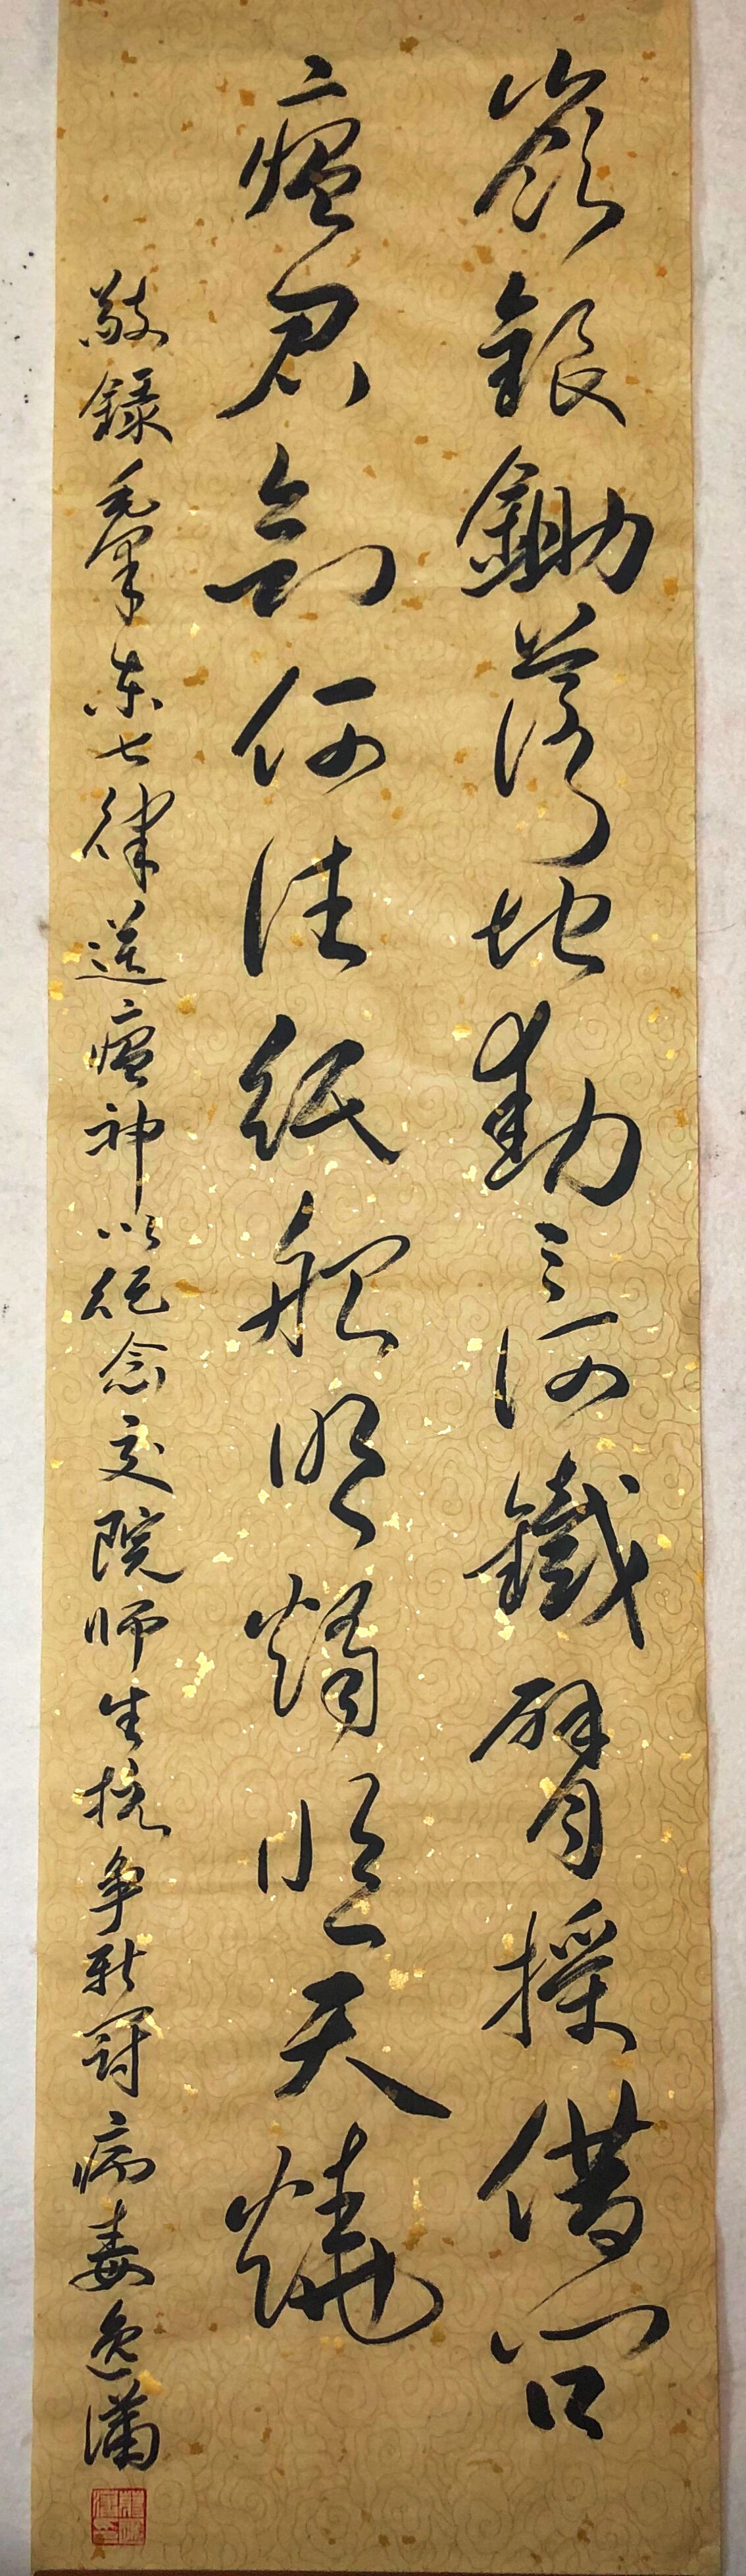 嶺銀鋤落地動三河鐵臂搖借問
瘟君欲何往紙船明燭照天燒
敬錄毛澤东七律送瘟神以紀念交院师生抗争新冠病毒逸瀟